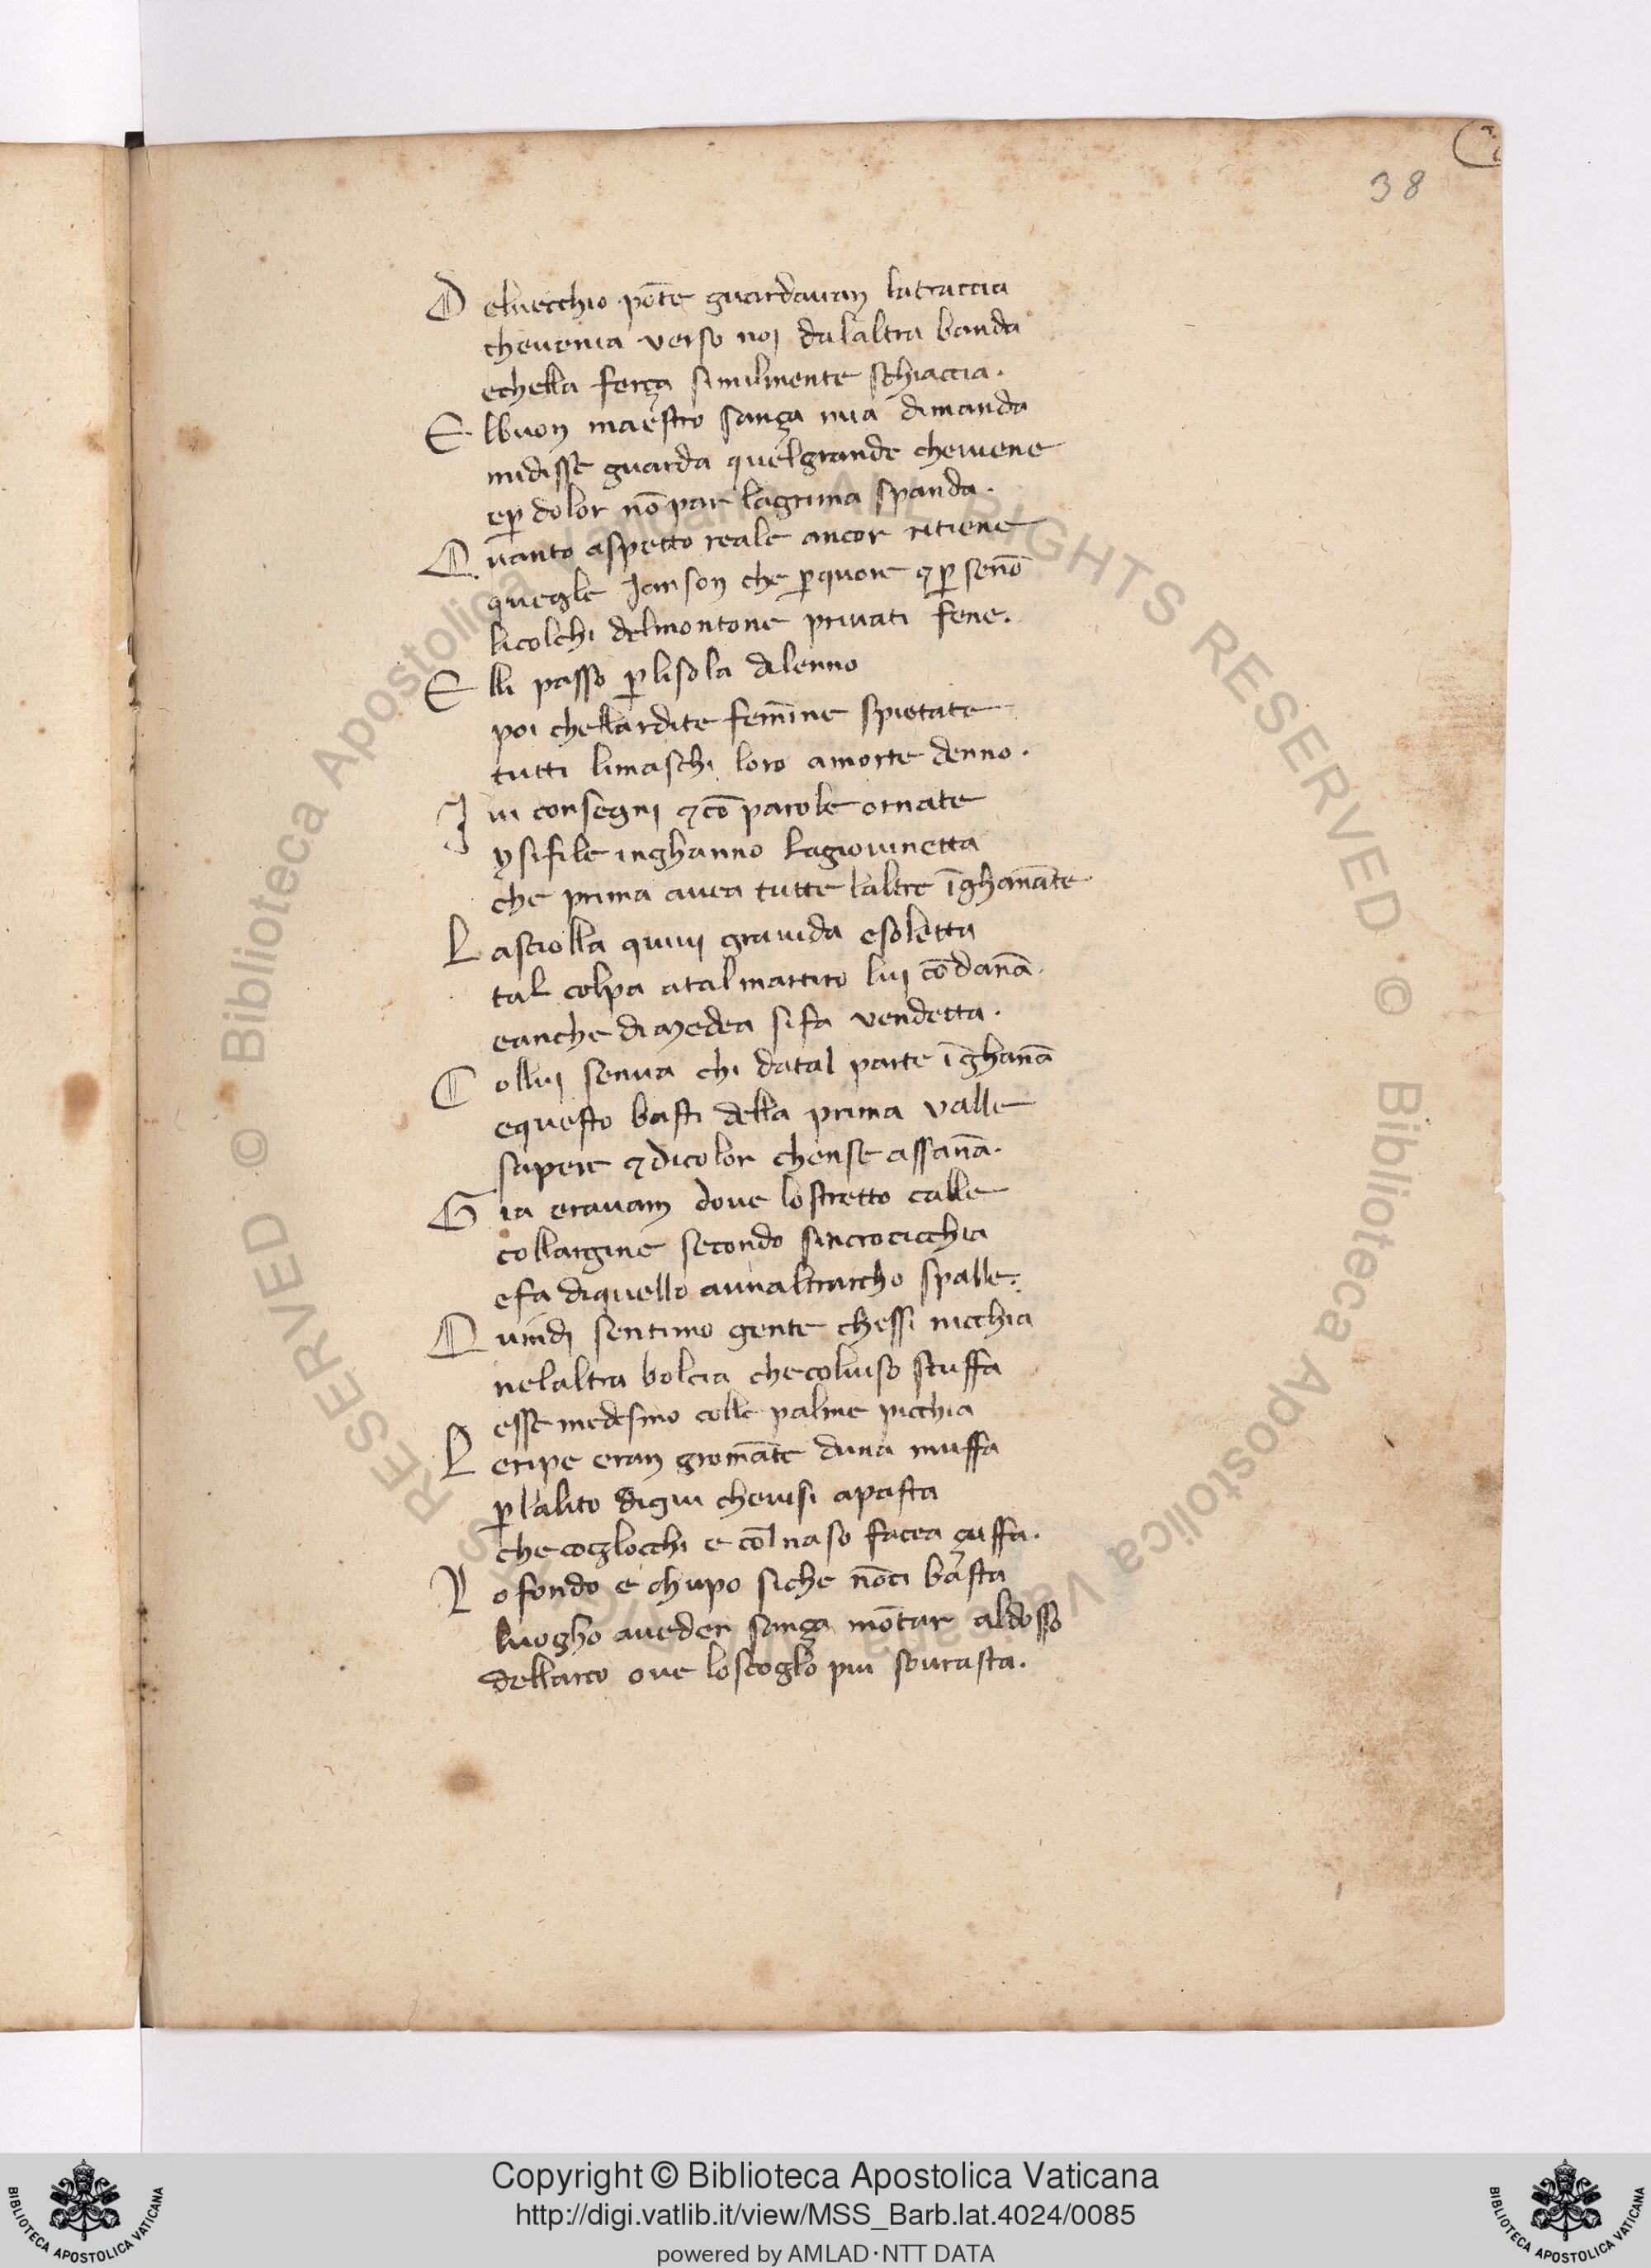 38
D eluecchio põte guardauan latraccia
cheuenia verso noi dalaltra banda
echella ferça similmente schiaccia.
E lbuon maestro sança mia dimanda
midisse guarda quelgrande cheuiene
eꝑ dolor nõ par lagrima spanda.
Q uanto aspetto reale ancor ritiene
quegle Janson che ꝑquore ⁊ ꝑ senõ
licolchi delmontone priuati fene.
E lli passo ꝑlisola dilenno
poi chellardite femĩne spietate
tutti limaschi loro amorte denno.
I ui consegni ⁊cõ parole ornate
ysifile inghanno lagiouinetta
che prima auea tutte laltre ĩghanãte
L asciolla quiui grauida esoletta
tal colpa atalmartiro lui cõdanã.
eanche dimedea sifa vendetta.
C ollui senua chi datal parte ĩghanã
equesto basti della prima valle
sapere ⁊dicolor chense assanã.
G ia erauam doue lostretto calle
collargine secondo sincrocicchia
efa diquello aunaltrarcho spalle.
Q uiндi sentimo gente chessi nicchia
nelaltra bolcia checoluiso scuffa
esse medesmo colle palme picchia
L eripe eran gromãte duna muffa
ꝑ lalito digiu cheuisi apasta
che coglocchi e cõl naso facea çuffa.
L o fondo e chupo siche nõci basta
luogho aueder sança mõtar aldosso
dellarco oue loscoglo piu sourasta.
© Biblioteca Apostolica Vaticana ALL RIGHTS RESERVED © Biblioteca Apostolica Vaticana ALL RIGHTS RESERVED
BIBLIOTECA APOSTOLICA VATICANA
Copyright © Biblioteca Apostolica Vaticana
http://digi.vatlib.it/view/MSS_Barb.lat.4024/0085
powered by AMLAD·NTT DATA
BIBLIOTECA APOSTOLICA VATICANA